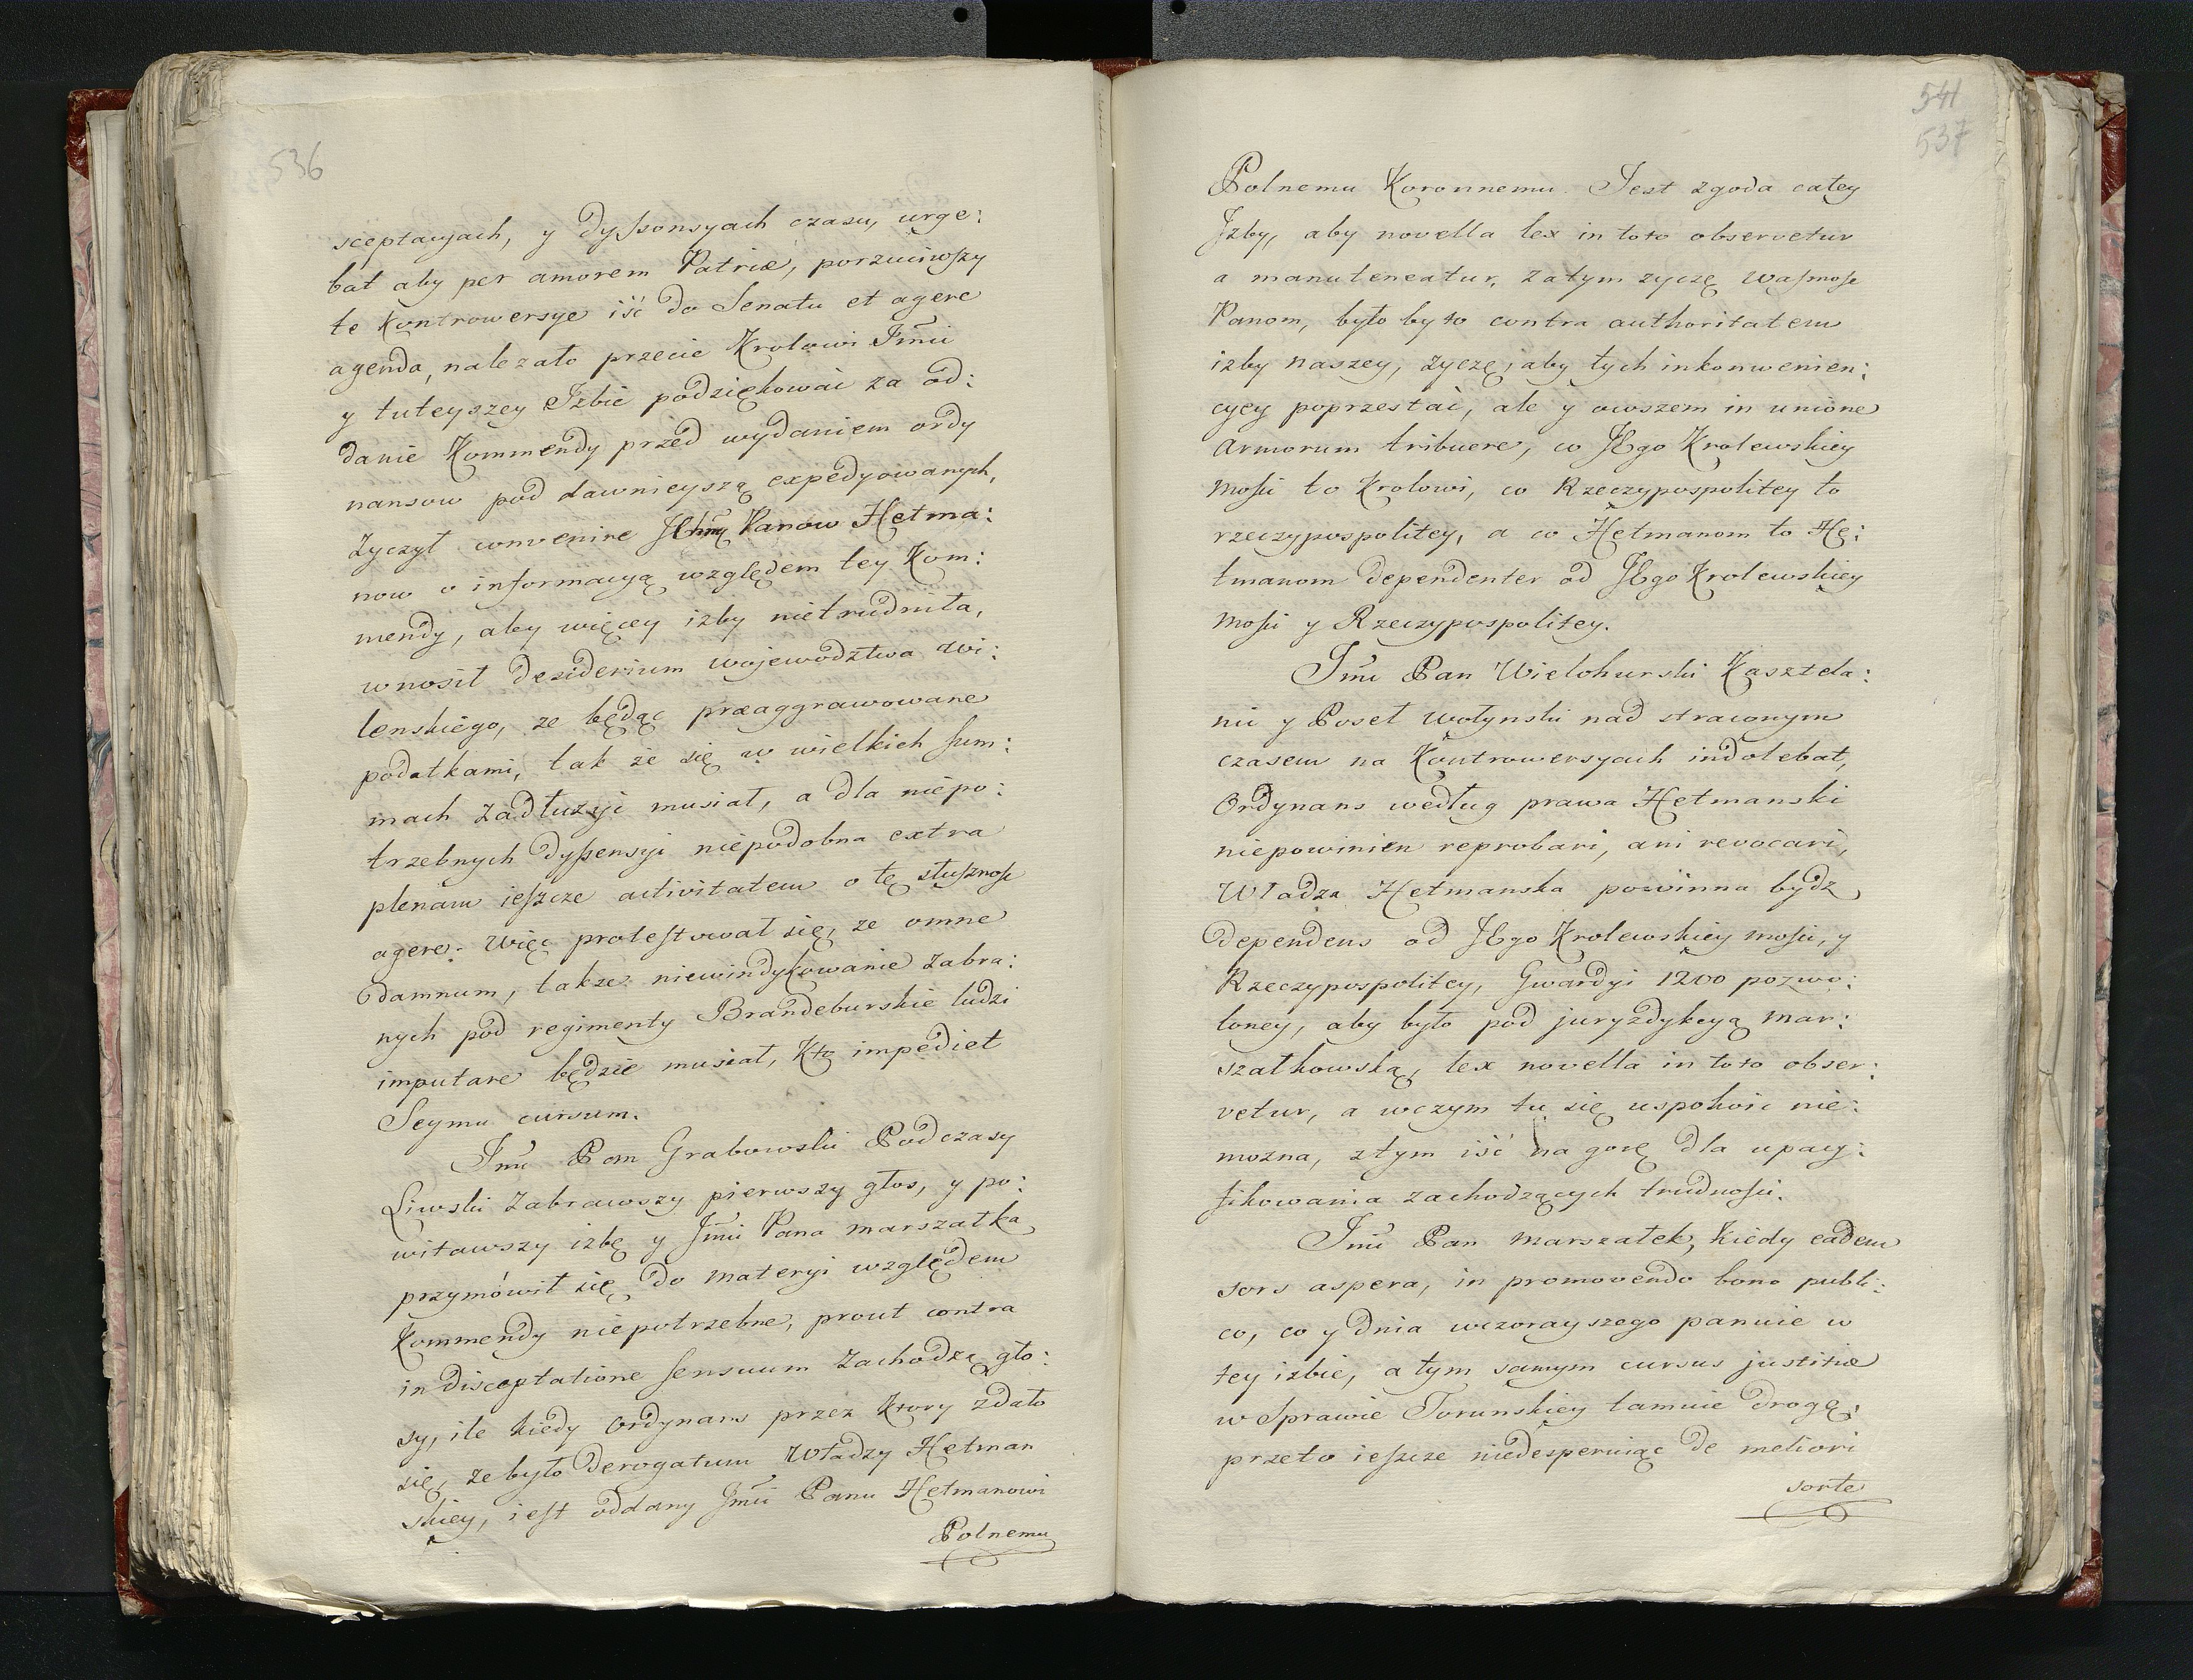 536
sceptacyach, y dyssensyach czasu, urge:
bat aby per amorem Patriæ, porzuciwszy
te kontrowersye iść do Senatu et agere
agenda, nalezało przecie Krolowi Jmći
y tuteyszey Jzbie podziękować za od:
danie Kommendy przed wydaniem ordy
nansow pod dawnieyszą expedyowanych,
życzył convenire Panow Hetma:
now o informacyą względem tey Kom:
mendy, aby więcey izby nietrudniła,
wnosił deziderium wojewodztwa wi:
lenskiego, ze będąc præaggrawowane
podatkami, tak że się w wielkich sum:
mach zadłużyć musiał, a dla niepo:
trzebnych dyssensyi niepodobna extra
plenam ieszcze activitatem o tę słuszność
agere. Więc protestował się, ze omne
damnum, także niewindykowanie zabra:
nych pod regimenty Brandeburskie ludzi
imputare będzie musiał, kto impediet
Seymu cursum.
Jmći Pan Grabowski Podczasy
Liwski zabrawszy pierwszy głos, y po:
witawszy izbę y Jmći Pana marszałka
przymówił się do materyi względem
Kommendy niepotrzebne, prout contra
in disceptatione sensuum zachodzą gło:
sy, ile kiedy ordynans przez ktory zdało
się, ze było derogatum Władzy Hetman
skiey, iest oddany Jmći Panu Hetmanowi
Polnemu
541
537
Polnemu Koronnemu. Jest zgoda całey
Jzby, aby novella lex in toto observetur
a manuteneatur, zatym zyczę Waszmość
Panom, było by to contra authoritatem
izby naszey, zyczę, aby tych inkonwenien:
cyey poprzestać, ale y owszem in unione
armorum tribuere, co JEgo Krolewskiey
Mości to Krolowi, co Rzeczypospolitey to
rzeczypospolitey, a co Hetmanom to He:
tmanom dependenter od JEgo Krolewskiey
Mości y Rzeczypospolitey.
Jmći Pan Wielohurski Kasztela:
nic y Poseł wołynski nad straconym
czasem na Kontrowersyach indolebat,
Ordynans według prawa Hetmanski
niepowinien reprobari, ani revocari,
Władza Hetmanska powinna bydz
dependens od JEgo Krolewskiey mości, y
Rzeczypospolitey, Gwardyi 1200 pozwo:
loney, aby było pod juryzdykcyą mar:
szałkowską, lex novella in toto obser:
vetur, a wczym tu się uspokoić nie:
można, ztym iść na gorę dla upacy:
fikowania zachodzących trudności.
Jmći Pan Marszałek, kiedy eadem
sors aspera, in promovendo bono publi:
co, co y dnia wczorayszego panuie w
tey izbie, a tym samym cursus justitiæ
w Sprawie Torunskiey tamuie drogę,
przeto ieszcze niedesperuiąc de meliori
sorte